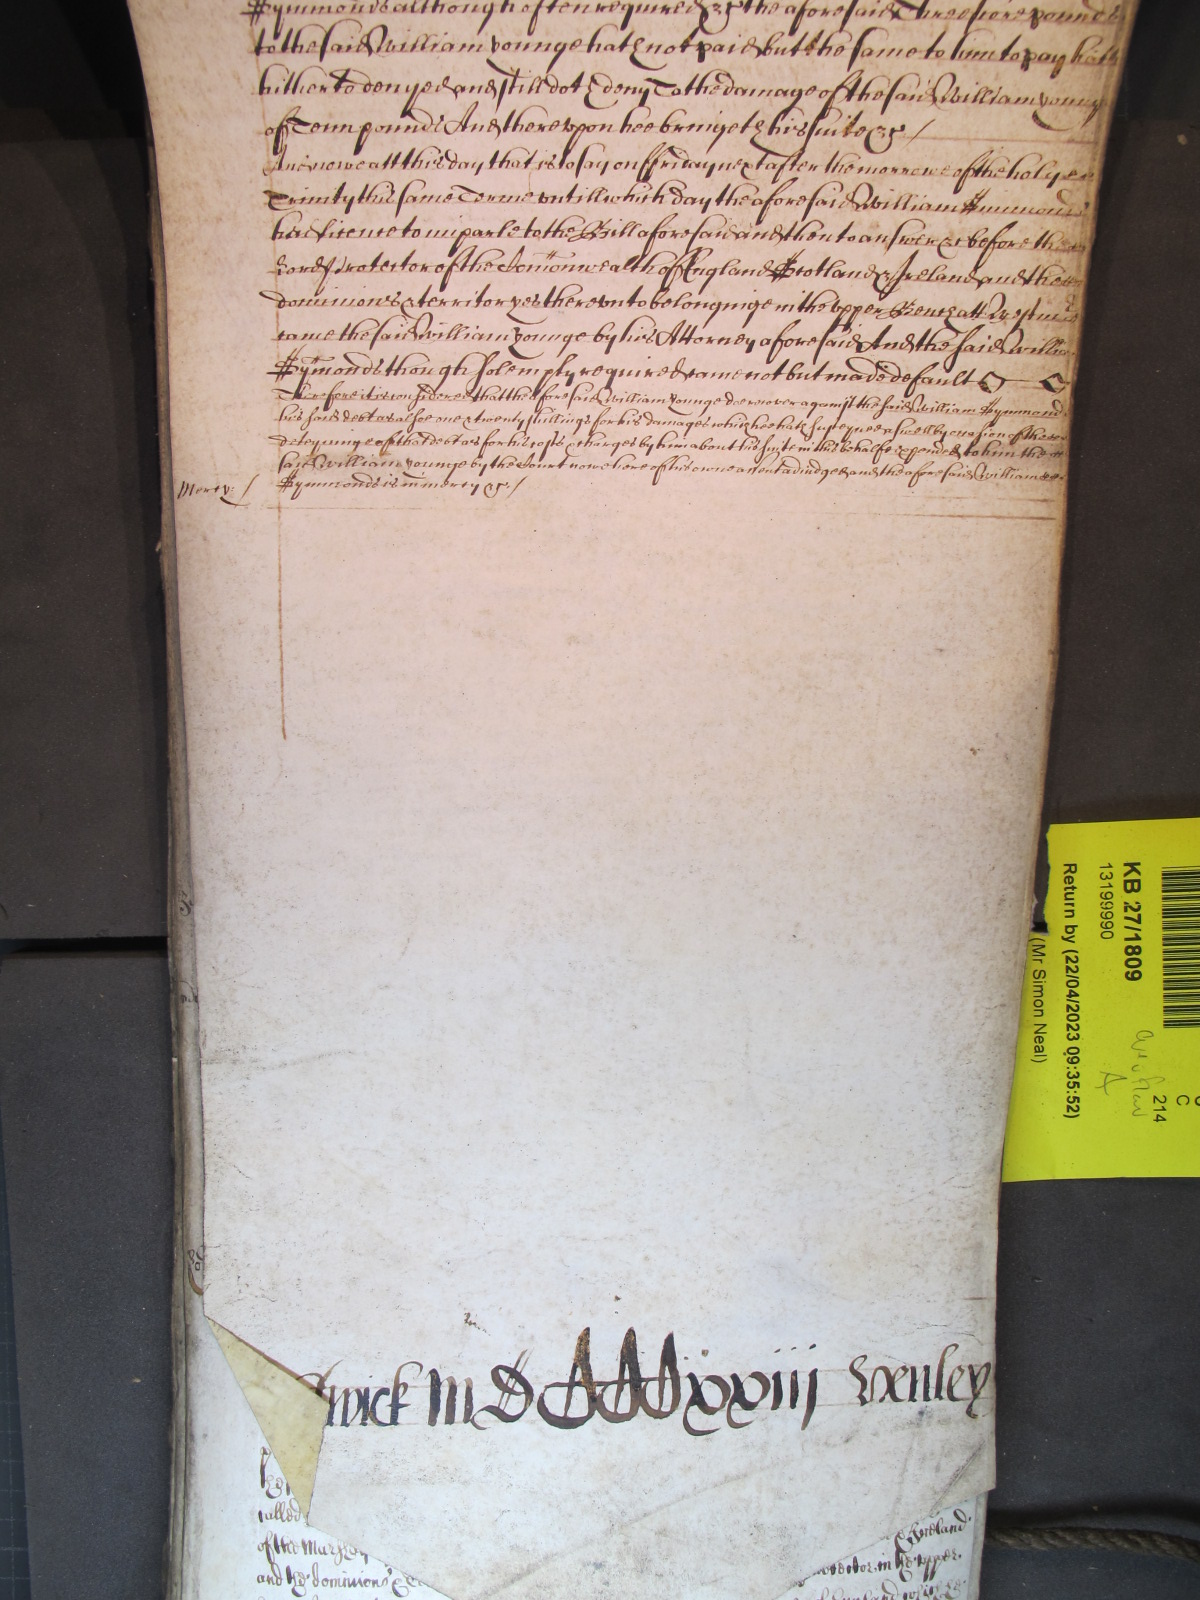 Symmonds although often required &c the aforesaid Threescore pounds
to the said William younge hath not paid but the same to him to pay hath
hitherto denyed and still doth deny To the damage of the said William younge
of Tenn pounds And thereupon hee bringeth his suite &c /
And nowe att this day that is to say on ffriday next after the morrowe of the holy
Trinity this same Terme untill which day the aforesaid William Symmonds
had licence to imparle to the Bill aforesaid and then to answer &c before the
Lord Protector of the Comonwealth of England Scotland & Ireland and the
dominions & territoryes thereunto belonginge in the upper Bench att Westm
came the said William younge by his Attorney aforesaid And the said William
Symonds though solemply required came not but made default
Therefore it is considered that the aforesaid William younge doe recover against the said William Symmonds
his said debt as alsoe one & twenty shillings for his damages which hee hath susteyned aswell by occasion of the
deteyninge of that debt as for his costs & charges by him about his suite in this behalfe expended to him the
said William younge by the Court nowe here of his owne assent adiudged and the aforesaid William
Symmonds is in mercy &c /
Mercy: /
wick MDCCCCxxiii Wenley
called
of the Marshall
and the dominions &c
Ireland
Protector in the upper
KB 27/1809
13199990
Return by (22/04/2023 09:35:52)
(Mr Simon Neal)
214
C
A